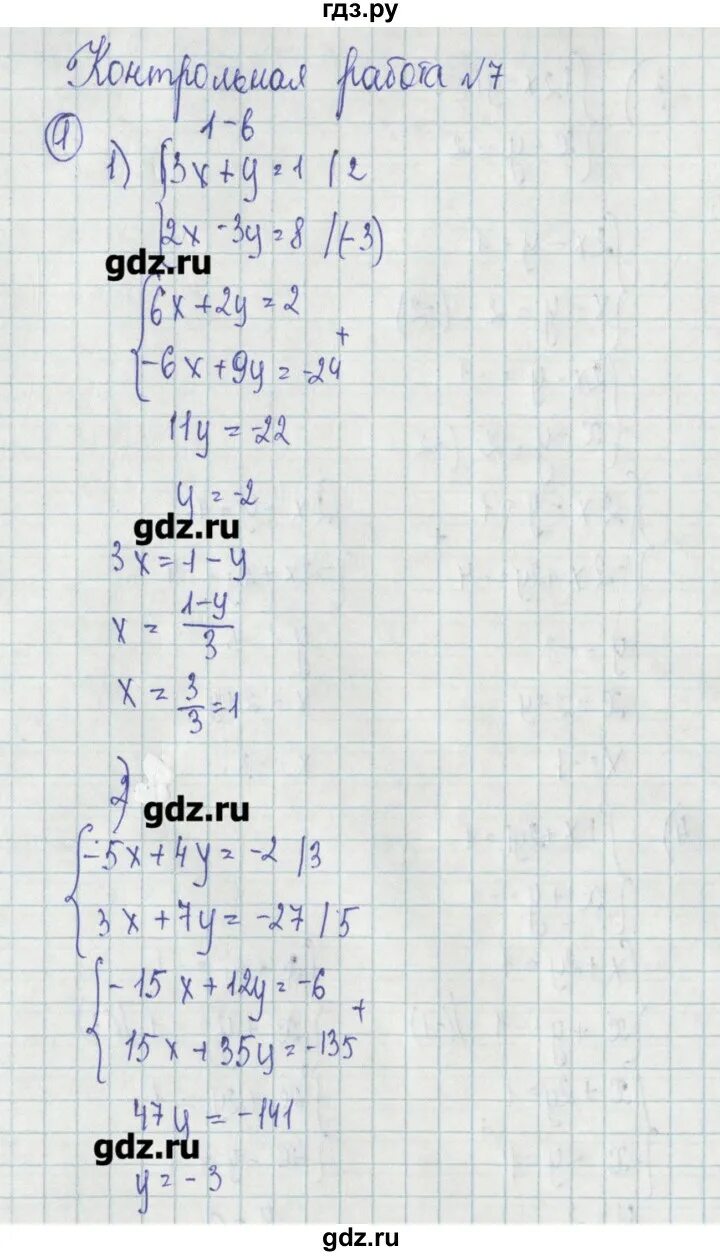 гдз.ру
Контрольная работа №7
1-в
1
1) {3x+y=1 /2
2x-3y=8 /(-3)
gdz.ru
{6x+2y=2
+
-6x+9y=-24
11y=-22
y=-2
gdz.ru
3x=1-y
x = (1-y)/3
x = 3/3 =1
2)
gdz.ru
{-5x+4y=-2 /3
3x+7y=-27 /5
{-15x+12y=-6
+
15x+35y=-135
47y=-141
gdz.ru
y=-3
gdz.ru